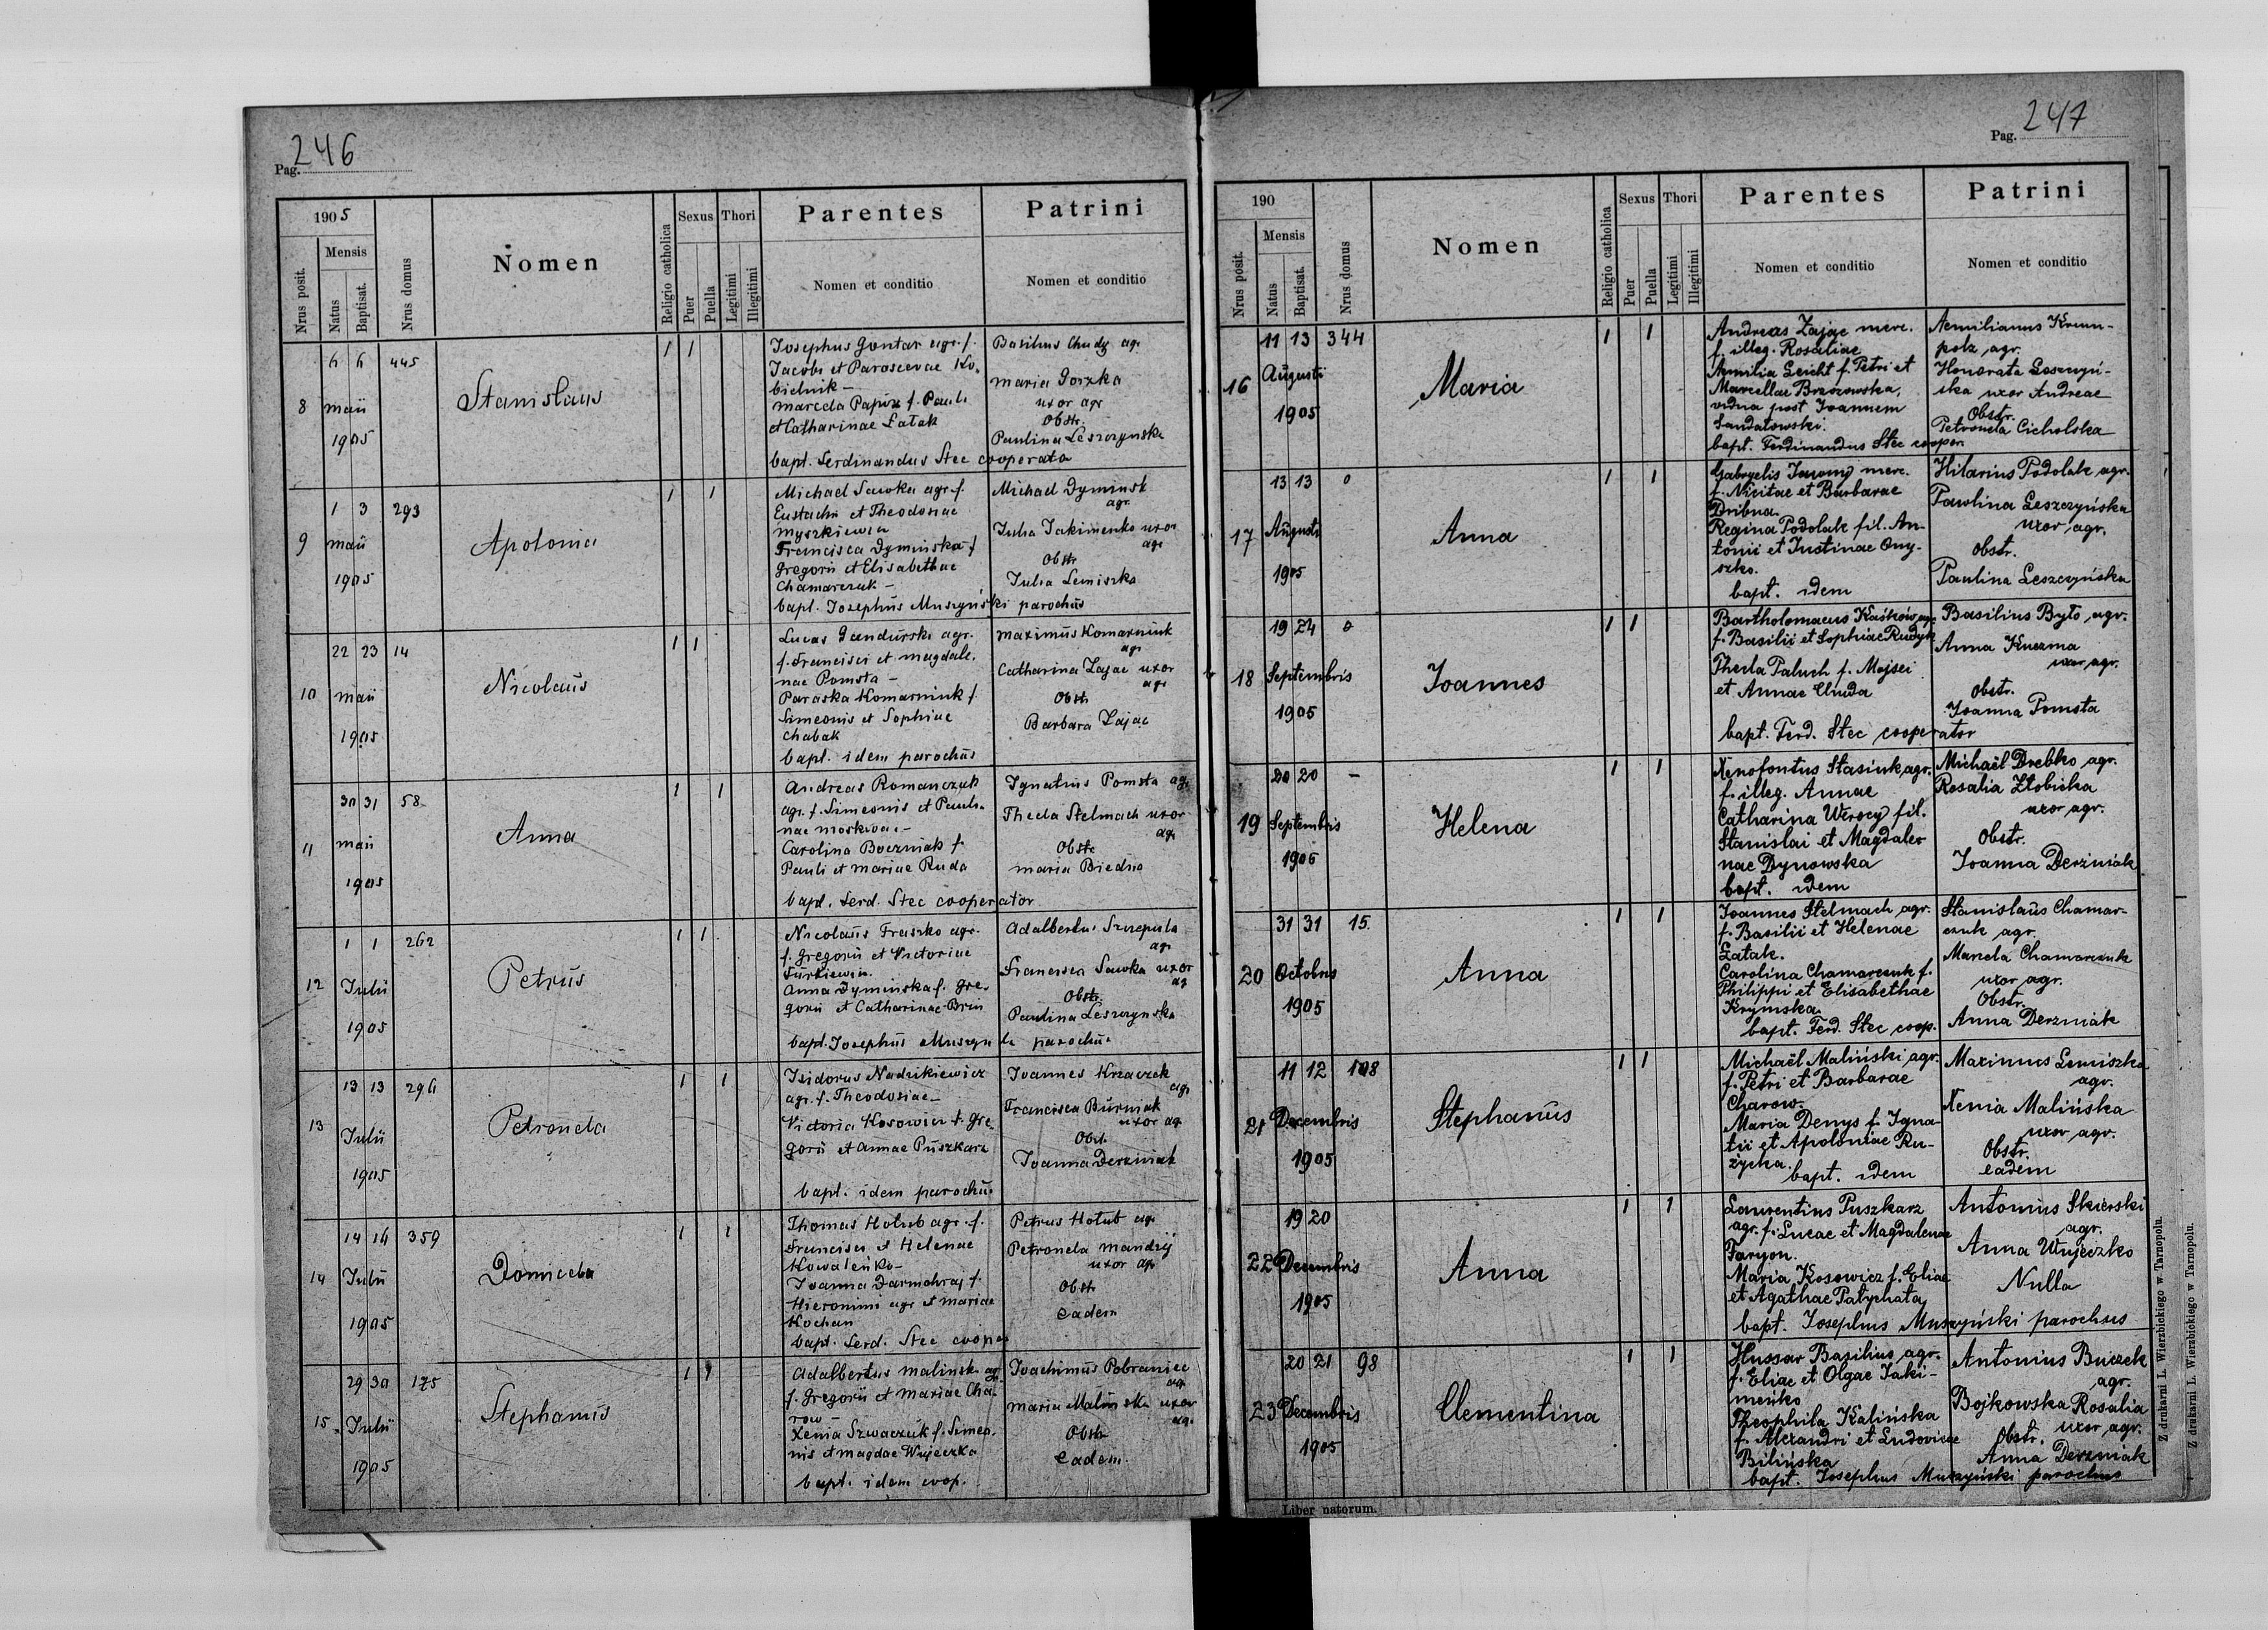 Pag. 246
1905
Nrus posit.
Mensis
Natus
Baptisat.
Nrus domus
Nomen
Religio catholica
Sexus
Puer
Puella
Thori
Legitimi
Illegitimi
Parentes
Nomen et conditio
Patrini
Nomen et conditio
8
6 6 445
maii
1905
Stanislaus
1 1
Josephus Gontar agr. f.
Jacobi et Parascevae Ko-
bielnik -
marcela Papiz f. Pauli
et Catharinae Łatak
bapt. Ferdinandus Stec cooperato
Basilius Chudy agr
maria Goszka
uxor agr
Obstr.
Paulina Leszczynska
9
1 3 293
maii
1905
Apolonia
1 1
Michael Sawka agr. f.
Eustachii et Theodosiae
myszkiewicz
Francisca Dyminska f
Gregorii et Elisabethae
Chamarczuk -
bapt. Josephus Muszyński parochus
Michael Dyminsk
agr.
Julia Jakimenko uxor
agr
Obstr
Julia Lemiszka
10
22 23 14
maii
1905
Nicolaus
1 1
Lucas Dandurski agr.
f. Francisci et magdale.
nae Pomsta -
Paraska Komarniuk f
Simeonis et Sophiae
Chabak
bapt. idem parochus
maximus Komarniuk
agr
Catharina Zajac uxor
agr
Obstr
Barbara Zajac
11
30 31 58
maii
1905
Anna
1 1
Andreas Romanczuk
agr. f. Simeonis et Pauli-
nae moskwa -
Carolina Boczniak f.
Pauli et mariae Ruda
bapt. Ferd. Stec cooperator
Ignatius Pomsta agr
Thecla Stelmach uxor
agr
Obstr
maria Biedna
12
1 1 262
Julii
1905
Petrus
1 1
Nicolaus Fraszko agr.
f. Gregorii et Victoriae
Furkiewicz.
Anna Dyminska f. Gre-
gorii et Catharinae Bris
bapt. Josephus Muszyn ki parochus
Adalbertus Szczepula
agr
Francisca Sawka uxor
ag
Obstr.
Paulina Leszczynska
13
13 13 296
Julii
1905
Petronela
1 1
Isidorus Nadzikiewicz
agr. f. Theodosiae -
Victoria Kosowicz f. Gre
gorii et Annae Puszkarz
bapt. idem parochus
Joannes Krzaczek
agr
Francisca Burniak
uxor ag
Obst.
Joanna Derzniak
14
14 16 359
Julii
1905
Domicela
1 1
Thomas Hołub agr. f.
Francisci et Helenae
Kowaleńko -
Joanna Darmohraj f.
Hieronimi agr et mariae
Kochan
bapt. Ferd. Stec cooper
Petrus Hołub agr
Petronela mandzij
uxor agr
Obstr
eadem
15
29 30 175
Julii
1905
Stephanus
1 1
Adalbertus malinsk agr
f. Gregorii et mariae Cha.
row -
Xenia Szwaczuk f. Simeo.
nis et magdae Wujeczka
bapt. idem coop.
Joachimus Pobraniec
agr
maria Malinska uxor
agr
Obstr
eadem
Pag. 247
190
Nrus posit.
Mensis
Natus
Baptisat.
Nrus domus
Nomen
Religio catholica
Sexus
Puer
Puella
Thori
Legitimi
Illegitimi
Parentes
Nomen et conditio
Patrini
Nomen et conditio
16
11 13 344
Augusti
1905
Maria
1 1
Andreas Zając merc.
f. illeg. Rosaliae
Aemilia Leicht f. Petri et
Marcellae Brzozowska,
vidua post Joannem
Sandatowski.
bapt. Ferdinandus Stec cooper.
Aemilianus Krum-
polz agr.
Honorata Loszczyń-
ska uxor Andreae
Obstr.
Petronela Cicholska
17
13 13 0
Augusti
1905
Anna
1 1
Gabryelis Jawny merc.
f. Nicitae et Barbarae
Dribna.
Regina Podolak fil. An-
tonii et Justinae Ony-
szko.
bapt. idem
Hilarius Podolak agr.
Pawlina Leszczyńska
uxor agr.
Obstr.
Paulina Leszczyńska
18
19 24 0
Septembris
1905
Joannes
1 1
Bartholomaeus Kaśków agr.
f. Basilii et Sophiae Rudyk
Thecla Paluch f. Mojsei
et Annae Chuda
bapt. Ferd. Stec cooperator
Basilius Byto agr.
Anna Kuczma
uxor agr.
Obstr.
Joanna Pomsta
19
20 20 -
Septembris
1905
Helena
1 1
Xenofontus Stasiuk agr.
f. illeg. Annae
Catharina Werocy fil.
Stanislai et Magdale-
nae Dynowska
bapt. idem
Michaël Drebko agr.
Rosalia Złobicka
uxor agr.
Obstr.
Joanna Derzniak
20
31 31 15.
Octobris
1905
Anna
1 1
Joannes Stelmach agr.
f. Basilii et Helenae
Łatak.
Carolina Chamarczuk f.
Philippi et Elisabethae
Krymska.
bapt. Ferd. Stec coop.
Stanislaus Chamar-
czuk agr.
Marcela Chamarczuk
uxor agr.
Obstr.
Anna Derzniak
21
11 12 198
Decembris
1905
Stephanus
1 1
Michaël Maliński agr.
f. Petri et Barbarae
Charow.
Maria Denys f. Igna-
tii et Apoloniae Ru-
życka.
bapt. idem
Maximus Lemiszka
agr.
Xenia Malińska
uxor agr.
Obstr.
eadem
22
19 20
Decembris
1905
Anna
1 1
Laurentius Puszkarz
agr. f. Lucae et Magdalenae
Faryon.
Maria Kosowicz f. Eliae
et Agathae Patychata
bapt. Josephus Muszyński parochus
Antonius Skierski
agr.
Anna Wujeczko
Nulla
23
20 21 98
Decembris
1905
Clementina
1 1
Hussar Basilius agr.
f. Eliae et Olgae Jaki-
meńko
Theophila Kalińska
f. Alexandri et Ludovicae
Bilińska
bapt. Josephus Muszyński parochus
Antonius Buczek
agr.
Bojkowska Rosalia
uxor agr.
Obstr.
Anna Derzniak
Liber natorum.
Z drukarni L. Wierzbickiego w Tarnopolu.
Z drukarni L. Wierzbickiego w Tarnopolu.